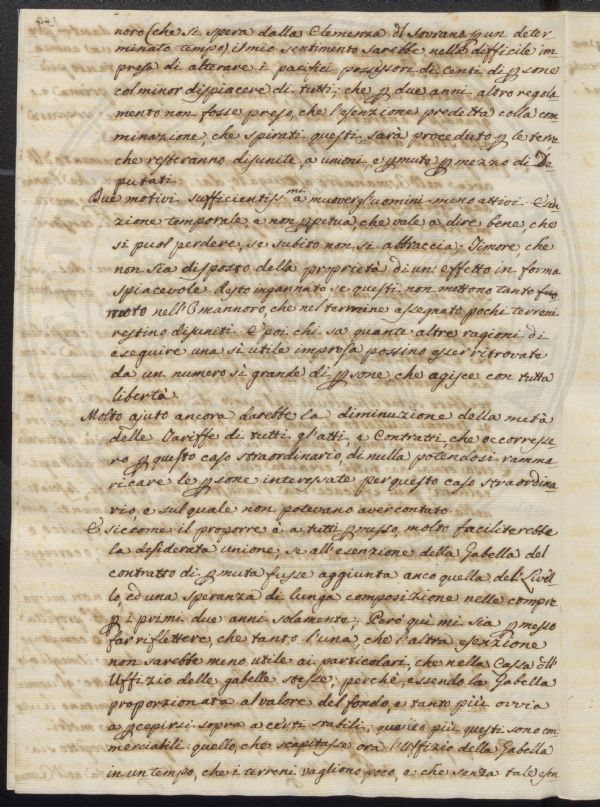 noro (che si spera dalla Clemenza del sovrano ꝑ un deter
minato tempo) il mio sentimento sarebbe nella difficile im-
presa di alterare i pacifici possessori di centi di ꝑsone
col minor dispiacere di tutti; che ꝑ due anni altro regola
mento non fosse preso, che l'esenzione predetta colla com
minazione, che spirati questi, sarà proceduto ꝑ le terre
che resteranno disunite, a unioni, e ꝑmute ꝑ mezzo di De
putati.
Due motivi sufficientissmi a muover gl'uomini meno attivi. Esen
zione temporale, e non ꝑpetua, che vale a dire bene, che
si puol perdere, se subito non si abbraccia; Timore, che
non sia disposto della proprietà di un' effetto in forma
spiacevole. Resto ingannato se questi non mettono tanto
moto nell'Ormannoro, che nel termine assegnato pochi terreni
restino disuniti. E poi chi sa quante altre ragioni di
eseguire una sì utile impresa possino esser ritrovate
da un numero sì grande di ꝑsone, che agisce con tutta
libertà.
Molto ajuto ancora darebbe la diminuzione della metà
delle Tariffe di tutti gl'atti, e Contratti, che occorresse
ro ꝑ questo caso straordinario, di nulla potendosi ramma
ricare le ꝑsone interessate per questo caso straordina
rio, e sul quale non potevano aver contato.
E siccome il proporre è a tutti ꝑmesso, molto faciliterebbe
la desiderata unione, se all'esenzione della Gabella del
contratto di ꝑmuta fusse aggiunta anco quella del Livel
lo, ed una speranza di lunga composizione nelle compre
ꝑ i primi due anni solamente. Però qui mi sia ꝑmesso
far riflettere, che tanto l'una, che l'altra esenzione
non sarebbe meno utile ai particolari, che nella Cassa dell'
Uffizio delle gabelle stesse; perchè, essendo la Gabella
proporzionata al valore del fondo, e tanto più ovvia
a ꝑcepirsi sopra a certi stabili, quanto più questi sono com
merciabili: quello, che scapitasse ora l'Uffizio della Gabella
in un tempo, che i terreni vagliono poco, e che senza tale esen